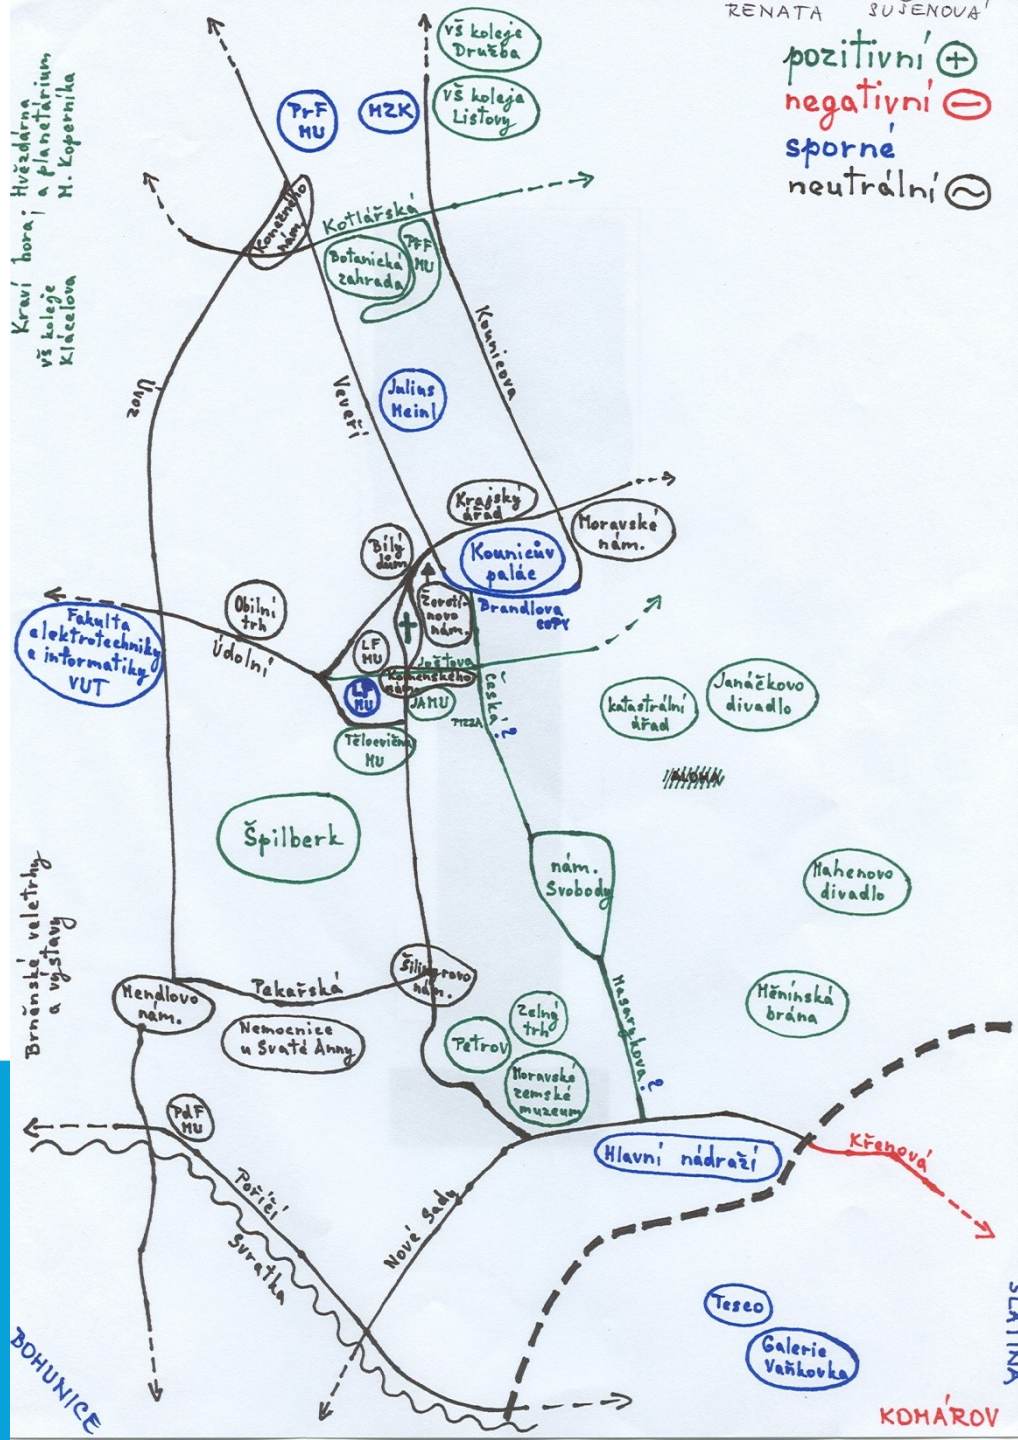 RENATA SUŠENOVÁ
pozitivní +
negativní −
sporné
neutrální ~
vš koleje
Družba
vš koleja
Listovy
PrF
MU
MZK
Kraví hora; Hvězdárna
a planetárium
M. Koperníka
vš koleje
Klácelova
Konečného
nám.
Kotlářská
Botanická
zahrada
PřF
MU
Kounicova
Úvoz
Veveří
Julius
Meinl
Krajský
úřad
Moravské
nám.
Bílý
dům
Kounicův
palác
Žerotí-
novo
nám.
Brandlova
COPY
Obilní
trh
Údolní
Fakulta
elektrotechniky
a informatiky
VUT
LF
MU
Joštova
Komenského
nám.
LF
MU
JAMU
PIZZA
Česká?
Tělocvična
MU
katastrální
úřad
Janáčkovo
divadlo
ALOHA
Špilberk
nám.
Svobody
Mahenovo
divadlo
Brněnské veletrhy
a výstavy
Mendlovo
nám.
Pekařská
Šilingrovo
nám.
Nemocnice
u Svaté Anny
Petrov
Zelný
trh
Moravské
zemské
muzeum
Masarykova?
Měnínská
brána
PdF
MU
Hlavní nádraží
Křenová
Poříčí
Svratka
Nové Sady
Tesco
Galerie
Vaňkovka
SLATINA
BOHUNICE
KOMÁROV